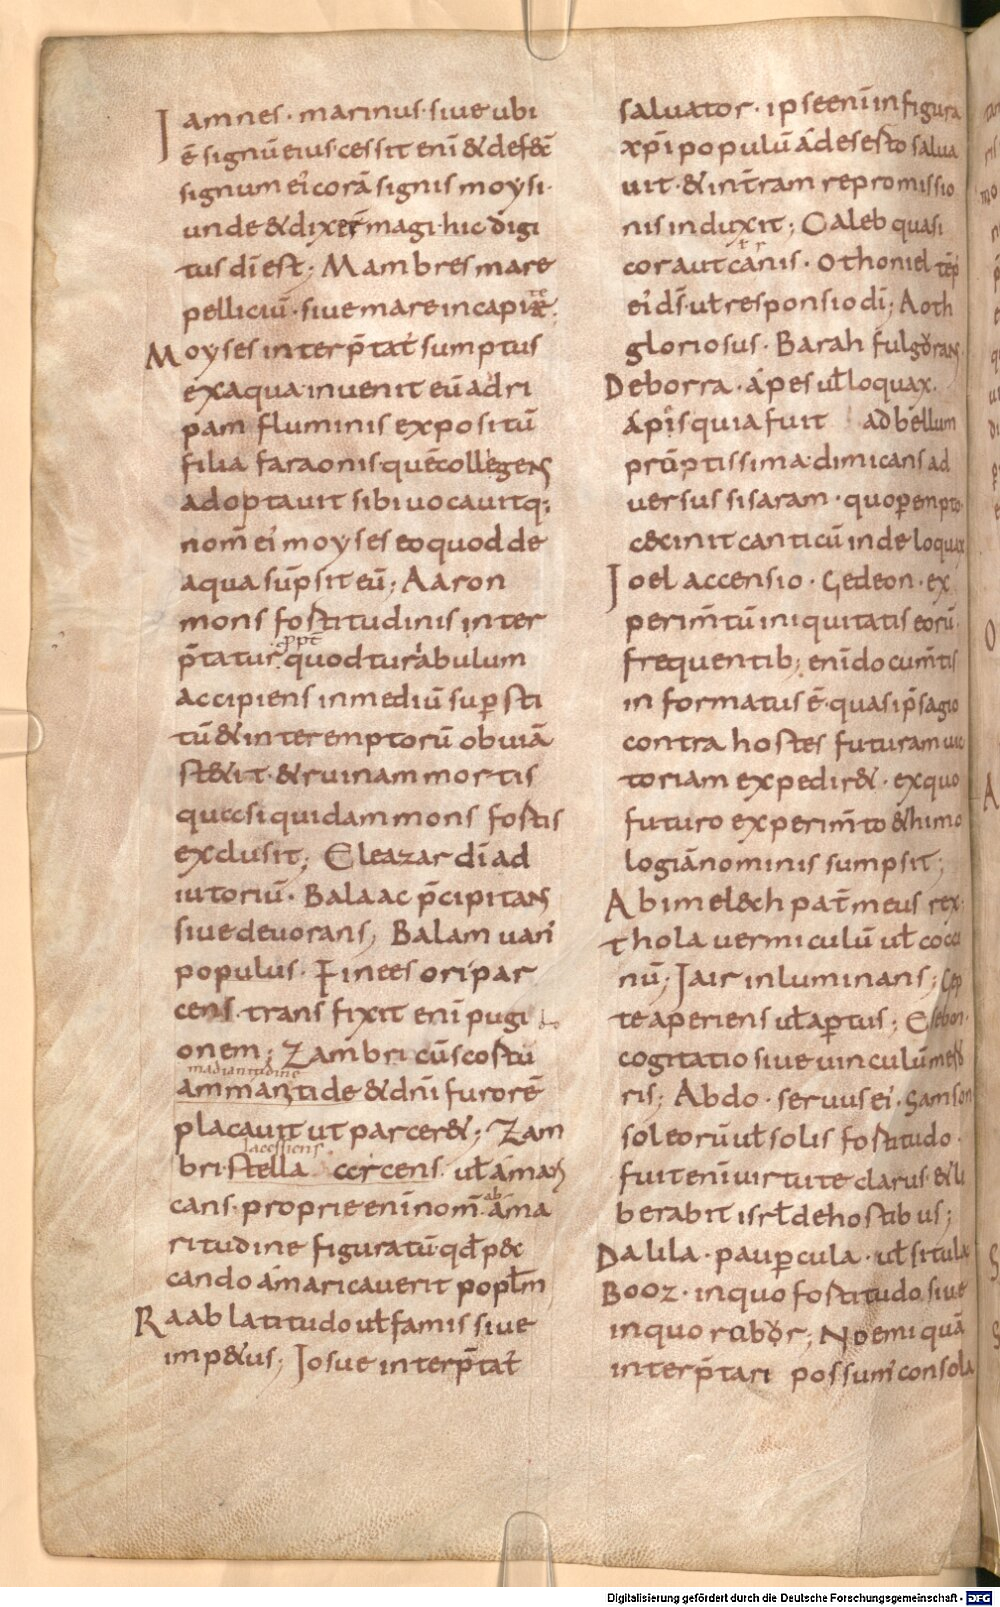 Iamnes · marinus · siue ubi
ē signū eius · cessit enī & def&
signum ei᾽ corā signis moysi ·
unde & dixer̄ magi · hic digi
tus dī est ; Mambres mare
pelliciū · siue mare in capite ·
Moyses interp̄tat᾽ sumptus
ex aqua · inuenit eū ad ri
pam fluminis expositū
filia faraonis · quē collegens
adoptauit sibi uocauitq;
nom̄ ei᾽ moyses eo quod de
aqua sūpsit eū ; Aaron
mons fostitudinis inter
p̄tatur · ꝓpt̄ quod turabulum
accipiens in mediū sup̱sti
tū & interemptorū obuiā
st&it · & ruinam mortis
quasi quidam mons fostis
exclusit ; Eleazar dī ad
iutoriū · Balaac p̄cipitans
siue deuorans ; Balam uan᾽
populus · Finees ori par
cens · transfixit enī pugi
onem ; Zambri cū scostū
madianitidine
ammantide & dn̄i furorē
placauit ut parcer& ; Zam
lacessiens
bri · stella cercens · ul̄ amas
cans · proprie enī nom̄ ab ama
ritudine figuratū · qd̄ pec
cando amaricauerit popl̄m
Raab latitudo ul̄ famis siue
imp&us ; Iosue interp̄tat᾽
saluator · ipse enī in figura
xp̄i populū a deserto salua
uit · & in t̄ram repromissio
nis induxit ; Caleb quasi
cor aut canis · Othoniel tēp᾽
ei᾽ ds̄ · ul̄ responsio dī ; Aoth
gloriosus · Barah fulgorans
Deborra · apes ul̄ loquax ·
apis quia fuit ad bellum
prūptissima · dimicans ad
uersus sisaram · quo p̱empto
cecinit canticū inde loquax
Ioel accensio · Gedeon · ex
perim̄tū iniquitatis eorū ·
frequentib; enī docum̄tis
informatus ē · quasi p̄sagio
contra hostes futuram uic
toriam expedir& · ex quo
futuro experim̄to & himo
logiā nominis sumpsit ;
Abimelech pat̄ meus rex ·
thola uermiculū ul̄ cocci
nū ; Iair inluminans ; Gep
te aperiens ul̄ ap̱tus ; Esebon ·
cogitatio siue uinculū mero
ris ; Abdo · seruus ei᾽ · Samson
sol eorū ul̄ solis fostitudo ·
fuit enī uirtute clarus · & li
berabit isrl̄ de hostibus ;
Dalila · paup̱cula · ul̄ situla
Booz · in quo fostitudo siue
in quo robor ; Noemi quā
interp̄tari possum᾽ consola
Digitalisierung gefördert durch die Deutsche Forschungsgemeinschaft - DFG